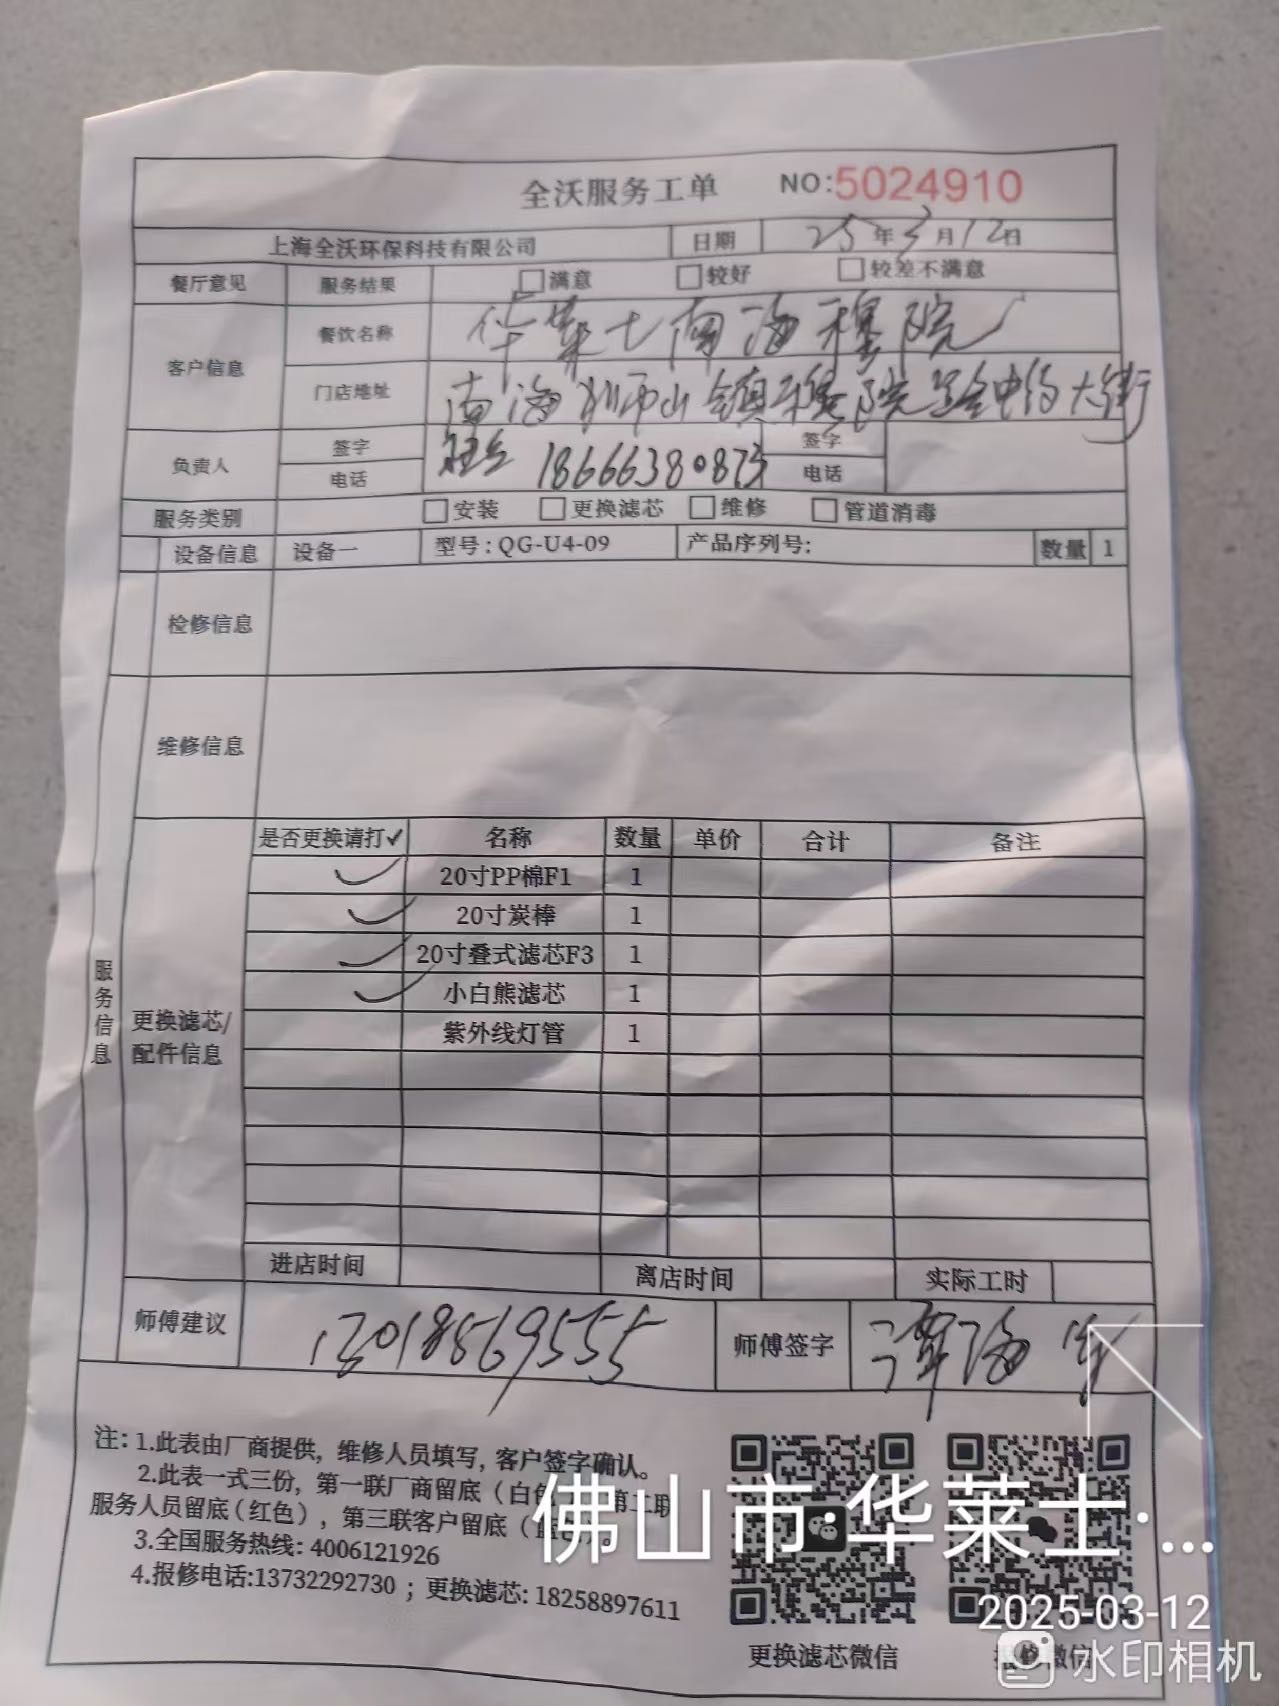 全沃服务工单 NO:5024910
上海全沃环保科技有限公司 日期 25年3月12日
餐厅意见 服务结果 □满意 □较好 □较差不满意
客户信息 餐饮名称 华莱士南海穆院
门店地址 南海狮山镇穆院路中约大街
负责人 签字 签字
电话 18666380873 电话
服务类别 □安装 □更换滤芯 □维修 □管道消毒
设备信息 设备一 型号:QG-U4-09 产品序列号: 数量 1
检修信息
维修信息
服务信息
更换滤芯/
配件信息
是否更换请打✓ 名称 数量 单价 合计 备注
✓ 20寸PP棉F1 1
✓ 20寸炭棒 1
✓ 20寸叠式滤芯F3 1
✓ 小白熊滤芯 1
紫外线灯管 1
进店时间 离店时间 实际工时
师傅建议 13018569555 师傅签字 谭海
注: 1.此表由厂商提供, 维修人员填写, 客户签字确认。
2.此表一式三份, 第一联厂商留底 (白色 第二联
服务人员留底 (红色) , 第三联客户留底 (蓝
3.全国服务热线: 4006121926
4.报修电话:13732292730 ; 更换滤芯: 18258897611
更换滤芯微信
报修微信
佛山市·华莱士·...
2025-03-12
水印相机